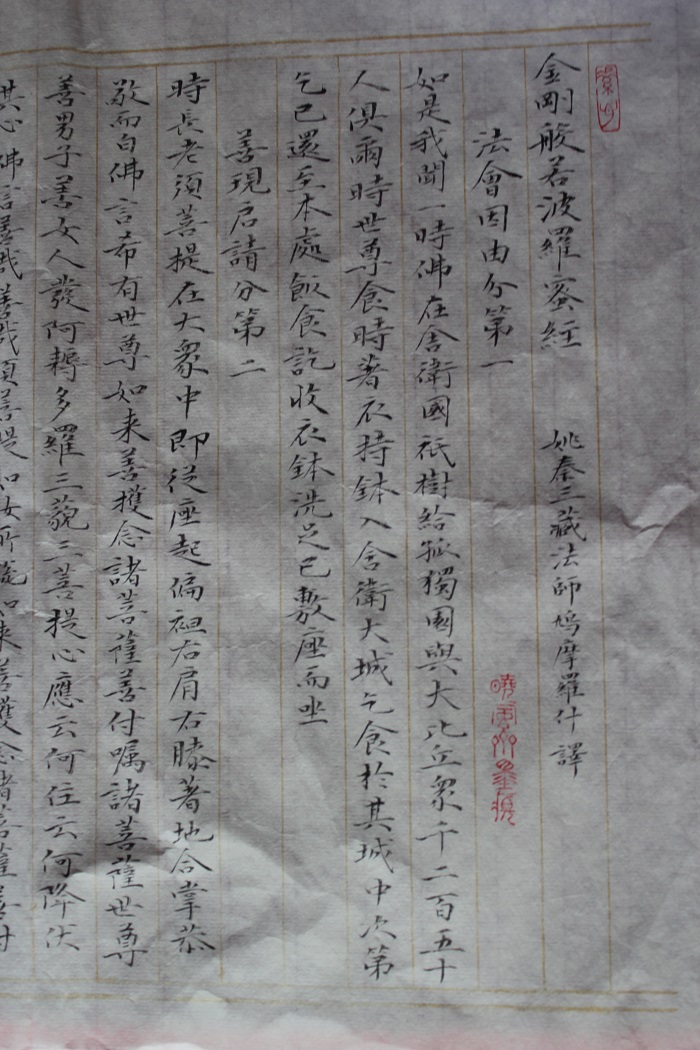 金剛般若波羅蜜經 姚秦三藏法師鳩摩羅什譯
法會因由分第一
如是我聞一時佛在舍衛國祇樹給孤獨園與大比丘眾千二百五十
人俱爾時世尊食時著衣持鉢入舍衛大城乞食於其城中次第
乞已還至本處飯食訖收衣鉢洗足已敷座而坐
善現启請分第二
時長老須菩提在大眾中即從座起偏袒右肩右膝著地合掌恭
敬而白佛言希有世尊如来善護念諸菩薩善付嘱諸菩薩世尊
善男子善女人發阿耨多羅三藐三菩提心應云何住云何降伏
其心佛言善哉善哉須菩提如汝所說如来善護念諸菩薩善付